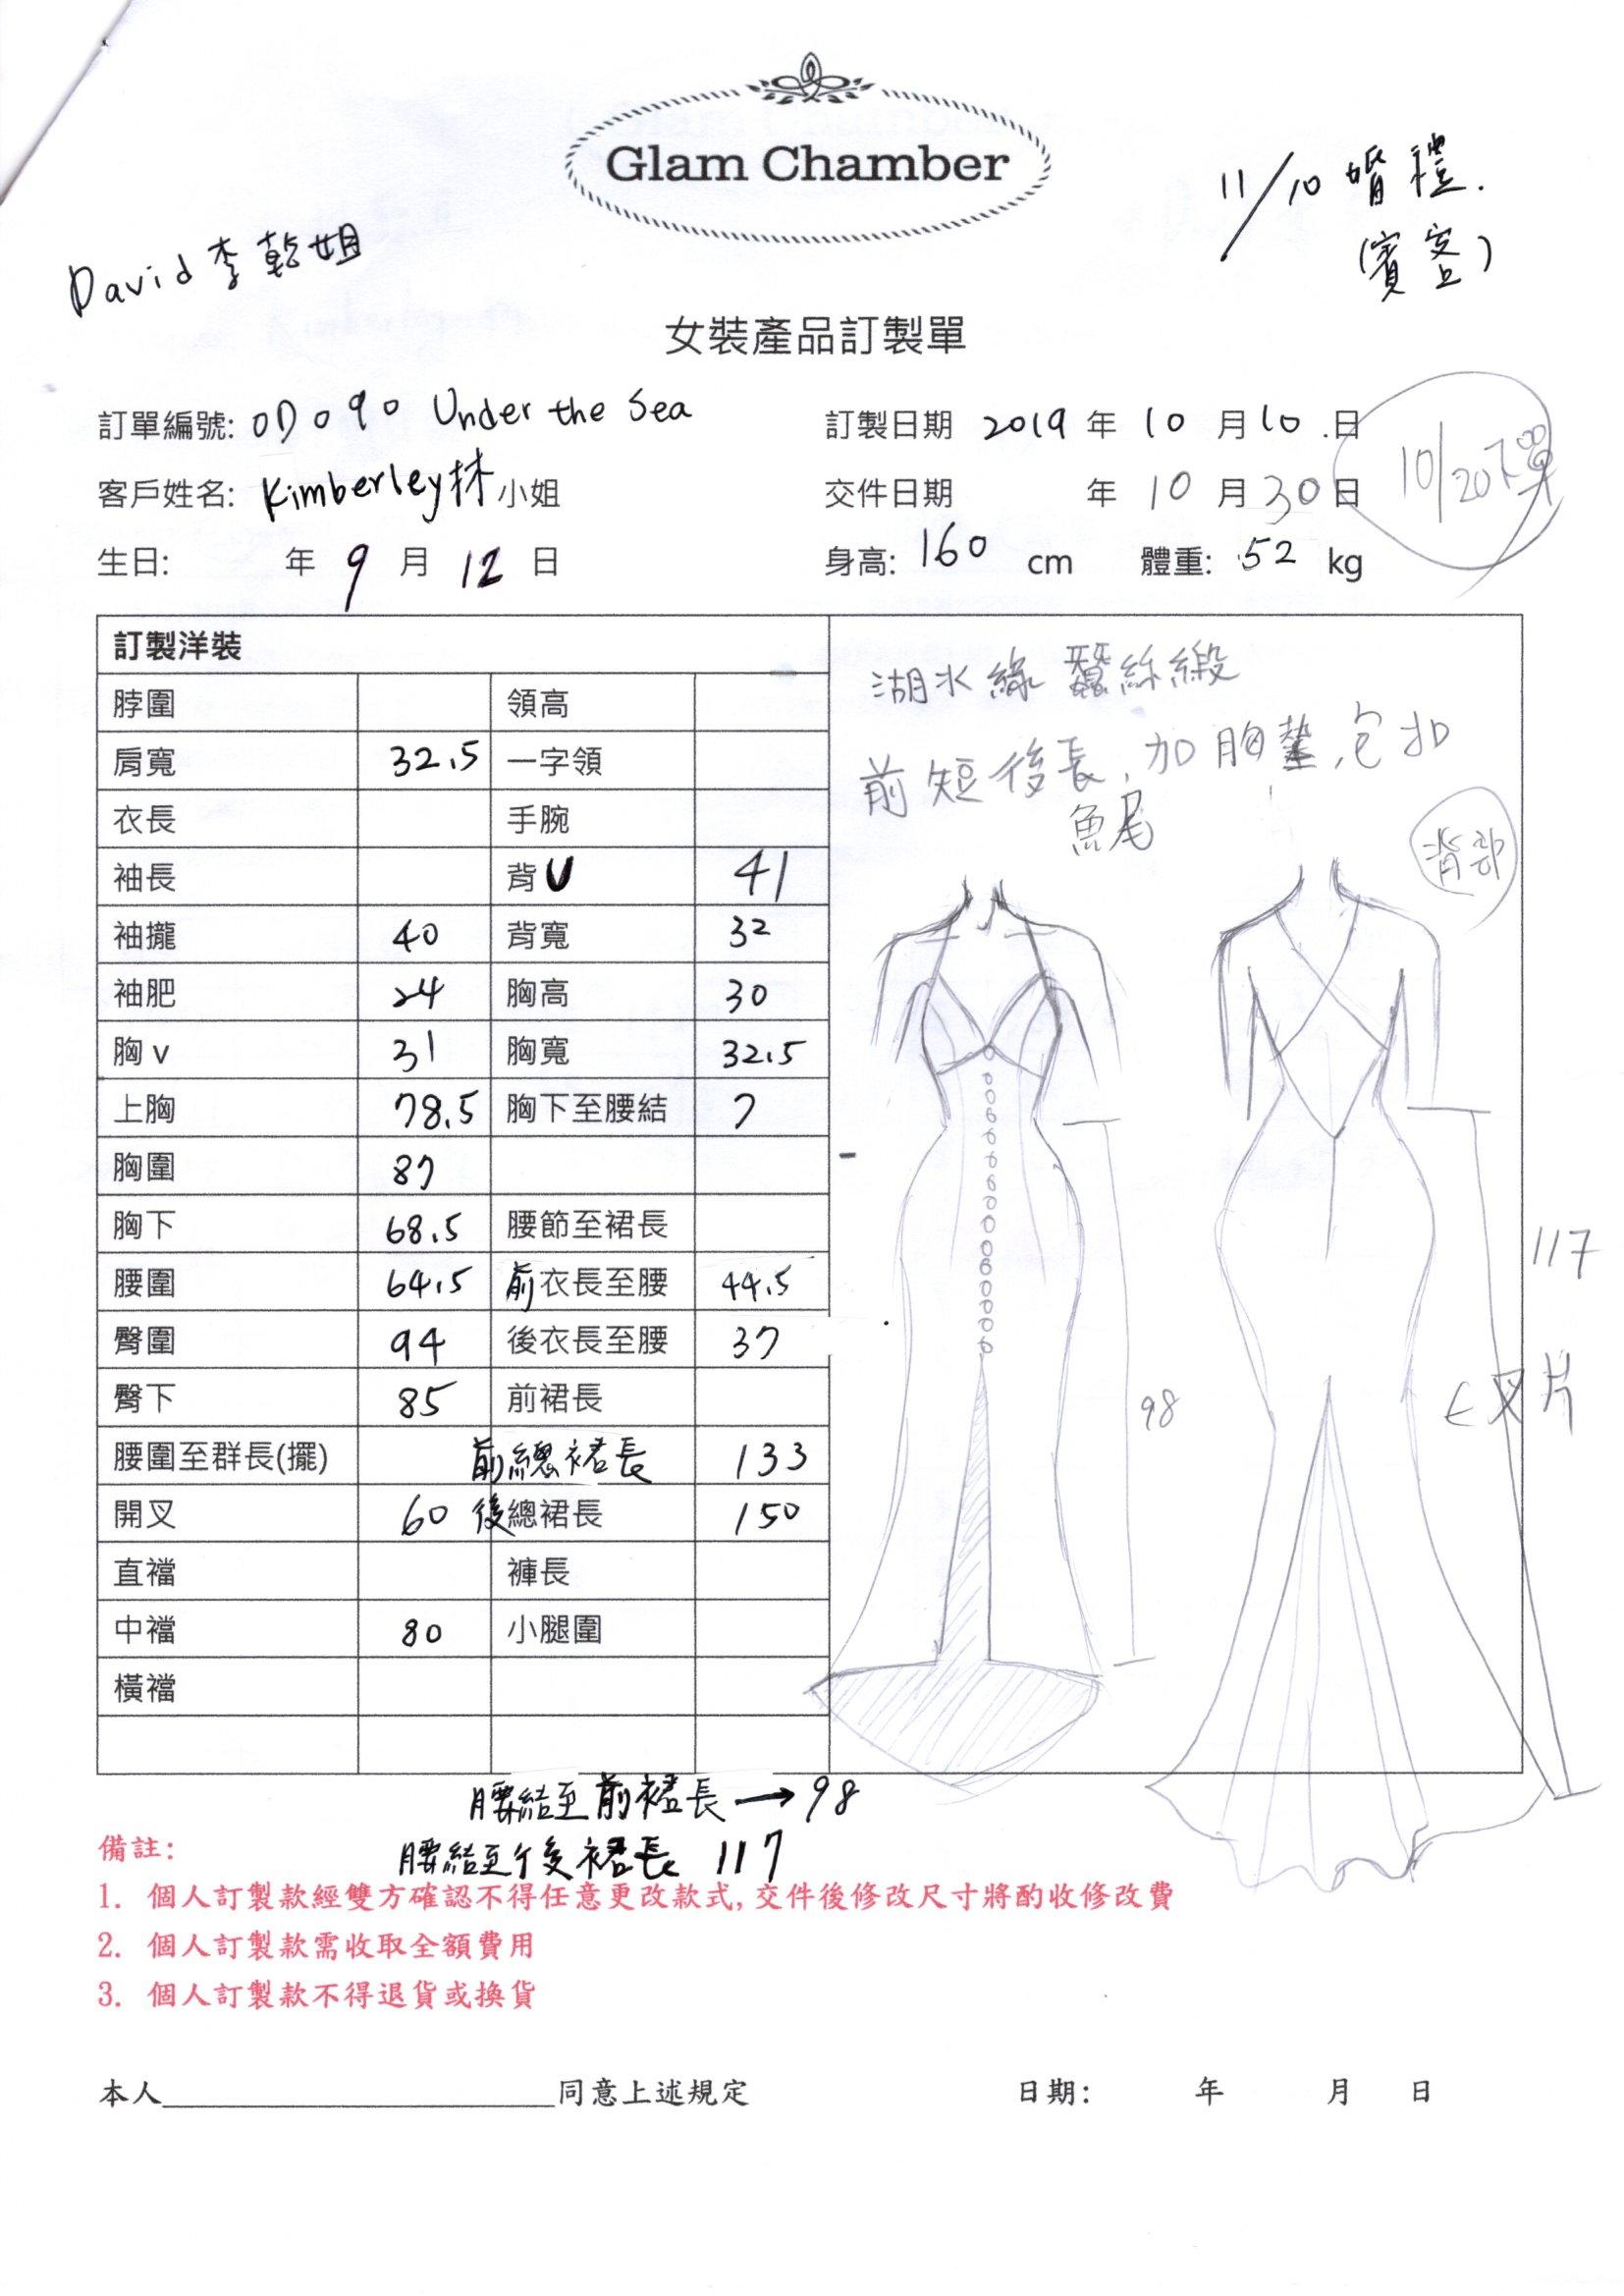 Glam Chamber
11/10 婚禮.
(賓客)
David 李乾姐
女裝產品訂製單
訂單編號: OD090 Under the Sea
訂製日期 2019 年 10 月 10 日
客戶姓名: Kimberley林 小姐
交件日期 年 10 月 30 日
10/20下單
生日: 年 9 月 12 日
身高: 160 cm 體重: 52 kg
訂製洋裝
脖圍 領高
肩寬 32.5 一字領
衣長 手腕
袖長 背V 41
袖攏 40 背寬 32
袖肥 24 胸高 30
胸v 31 胸寬 32.5
上胸 78.5 胸下至腰結 7
胸圍 87
胸下 68.5 腰節至裙長
腰圍 64.5 前衣長至腰 44.5
臀圍 94 後衣長至腰 37
臀下 85 前裙長
腰圍至群長(擺) 前總裙長 133
開叉 60 後總裙長 150
直襠 褲長
中襠 80 小腿圍
橫襠
湖水綠 蠶絲緞
前短後長, 加胸墊, 包扣
魚尾
背部
117
98
叉片
腰結至前裙長→98
腰結至後裙長 117
備註:
1. 個人訂製款經雙方確認不得任意更改款式, 交件後修改尺寸將酌收修改費
2. 個人訂製款需收取全額費用
3. 個人訂製款不得退貨或換貨
本人 同意上述規定
日期: 年 月 日